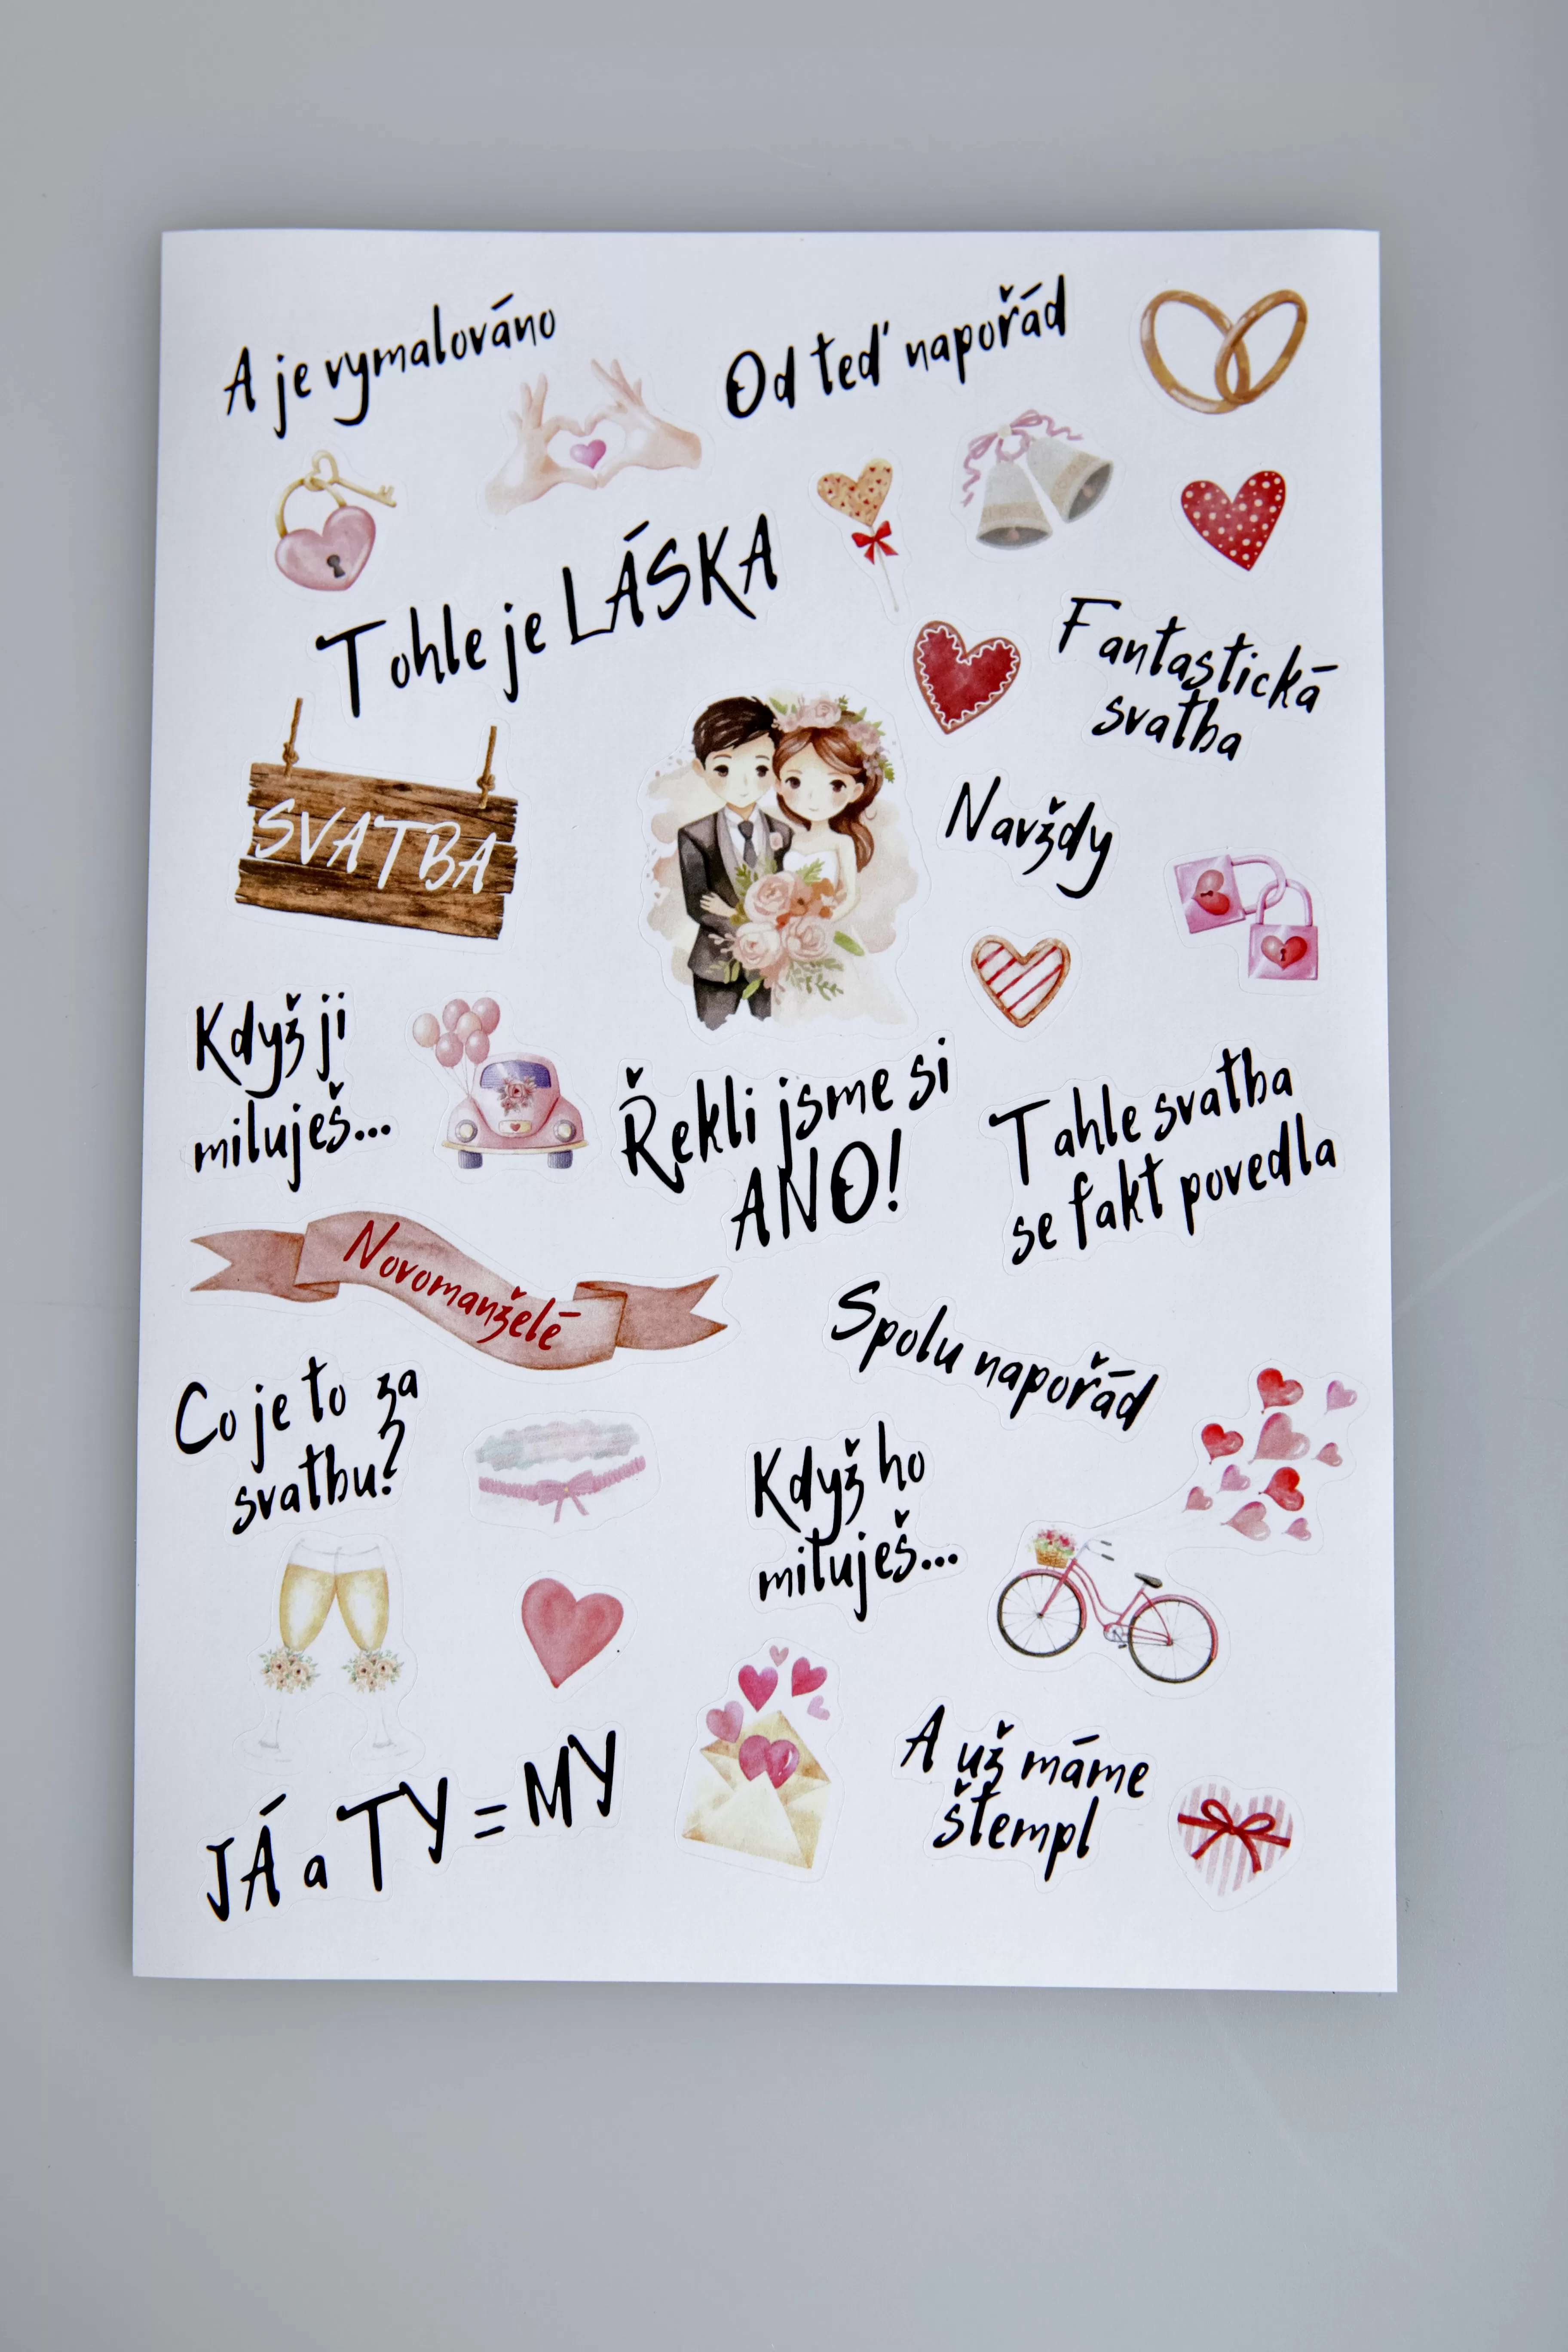 A je vymalováno
Od teď napořád
Tohle je LÁSKA
Fantastická
svatba
SVATBA
Navždy
Když ji
miluješ...
Řekli jsme si
ANO!
Tahle svatba
se fakt povedla
Novomanželé
Spolu napořád
Co je to za
svatbu?
Když ho
miluješ...
A už máme
štempl
JÁ a TY = MY